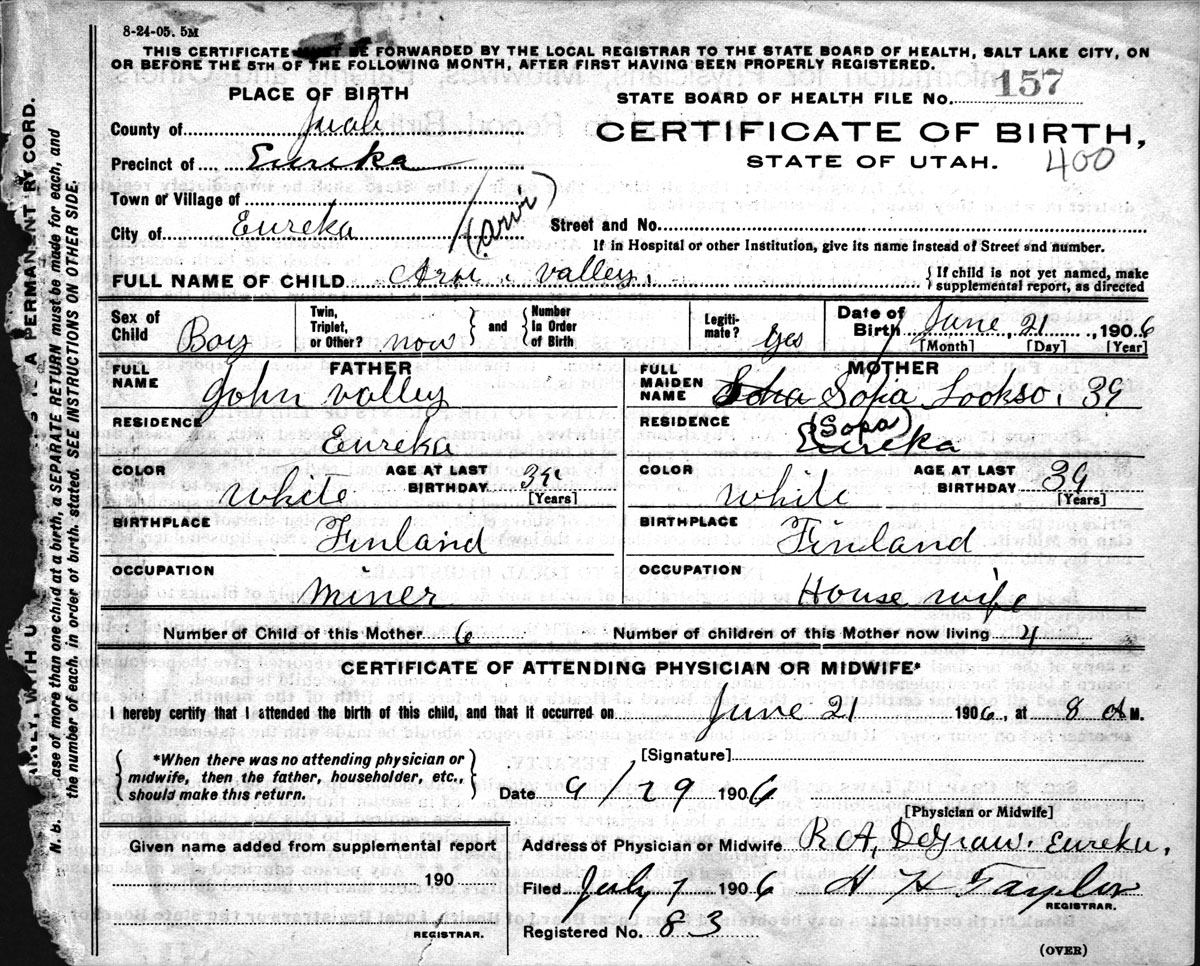 8-24-05. 5M
THIS CERTIFICATE MUST BE FORWARDED BY THE LOCAL REGISTRAR TO THE STATE BOARD OF HEALTH, SALT LAKE CITY, ON
OR BEFORE THE 5TH OF THE FOLLOWING MONTH, AFTER FIRST HAVING BEEN PROPERLY REGISTERED.
PLACE OF BIRTH
STATE BOARD OF HEALTH FILE No. 157
County of Juab
CERTIFICATE OF BIRTH,
Precinct of Eureka
STATE OF UTAH. 400
Town or Village of
City of Eureka
Street and No.
If in Hospital or other Institution, give its name instead of Street and number.
FULL NAME OF CHILD Arvi Valley.
{If child is not yet named, make
supplemental report, as directed
Sex of Child Boy
Twin, Triplet, or Other?
and
Number in Order of Birth
Legiti-mate? Yes
Date of Birth June, 21, 1906
[Month] [Day] [Year]
FATHER
FULL NAME John Valley
RESIDENCE Eureka
COLOR White
AGE AT LAST BIRTHDAY
[Years]
BIRTHPLACE Finland
OCCUPATION Miner
MOTHER
FULL MAIDEN NAME Sofia 39
(Sopa)
RESIDENCE Eureka
COLOR White
AGE AT LAST BIRTHDAY 39
[Years]
BIRTHPLACE Finland
OCCUPATION House wife
Number of Child of this Mother 6
Number of children of this Mother now living 4
CERTIFICATE OF ATTENDING PHYSICIAN OR MIDWIFE*
I hereby certify that I attended the birth of this child, and that it occurred on June 21 1906, at 8 A M.
{*When there was no attending physician or
midwife, then the father, householder, etc.,
should make this return.}
[Signature]
Date 9/29 1906
[Physician or Midwife]
Given name added from supplemental report
190
REGISTRAR.
Address of Physician or Midwife R A, DeGraw. Eureka.
Filed July 7 1906 H Taylor
REGISTRAR.
Registered No. 83
(OVER)
IS IS A PERMANENT RECORD.
N. B.
case of more than one child at a birth, a SEPARATE RETURN must be made for each, and
the number of each, in order of birth, stated. SEE INSTRUCTIONS ON OTHER SIDE.